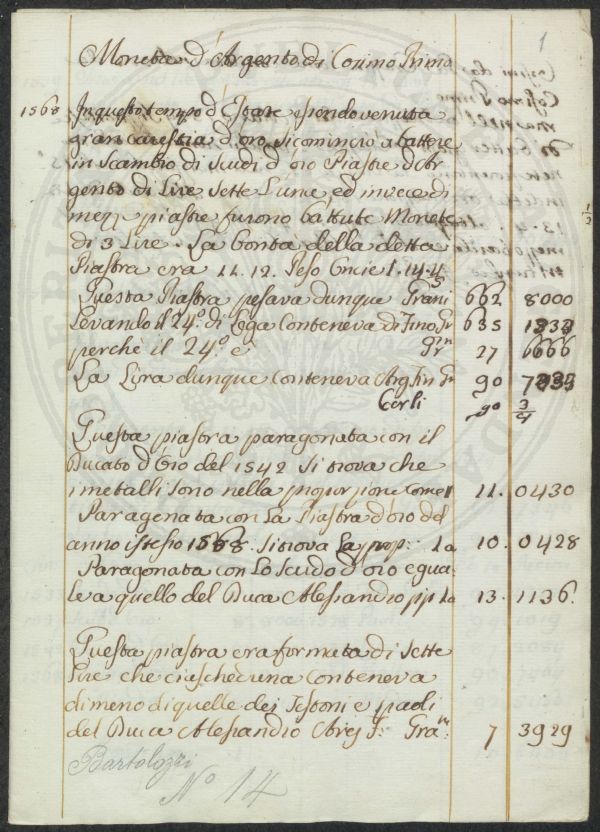 1
Moneta d'Argento di Cosimo Primo
1568 In questo tempo d'Estate essendo venuta
gran carestia d'oro, si cominciò a battere
in scambio di scudi d'oro Piastre d'Ar
gento di Lire sette l'una, ed invece di
mezz piastre furono battute Monete
di 3 Lire. La bontà della detta
Piastra era 11.12. Peso Oncie 1.14.4/5
Questa Piastra pesava dunque Grani 662 8000
Levando il 24.º di Lega Conteneva di Fino Gr 635
perchè il 24.º è Grⁿ 27 6666
La Lira dunque Conteneva Arg. fin Gr 90
Carli 90 3/4
Questa piastra paragonata con il
Ducato d'Oro del 1542 si trova che
i metalli sono nella proporzione come 11. 0430
Paragonata con la Piastra d'oro del
anno istesso 1568 si trova la prop: 1 a 10. 0428
Paragonata con lo scudo d'oro egua
le a quello del Duca Alessandro pp 1 a 13. 1136.
Questa piastra era formata di sette
Lire che ciascheduna conteneva
di meno di quelle dei Testoni e paoli
del Duca Alessandro Arg F: Graⁿⁱ 7 3929
Bartolozzi
Nº 14
1/2